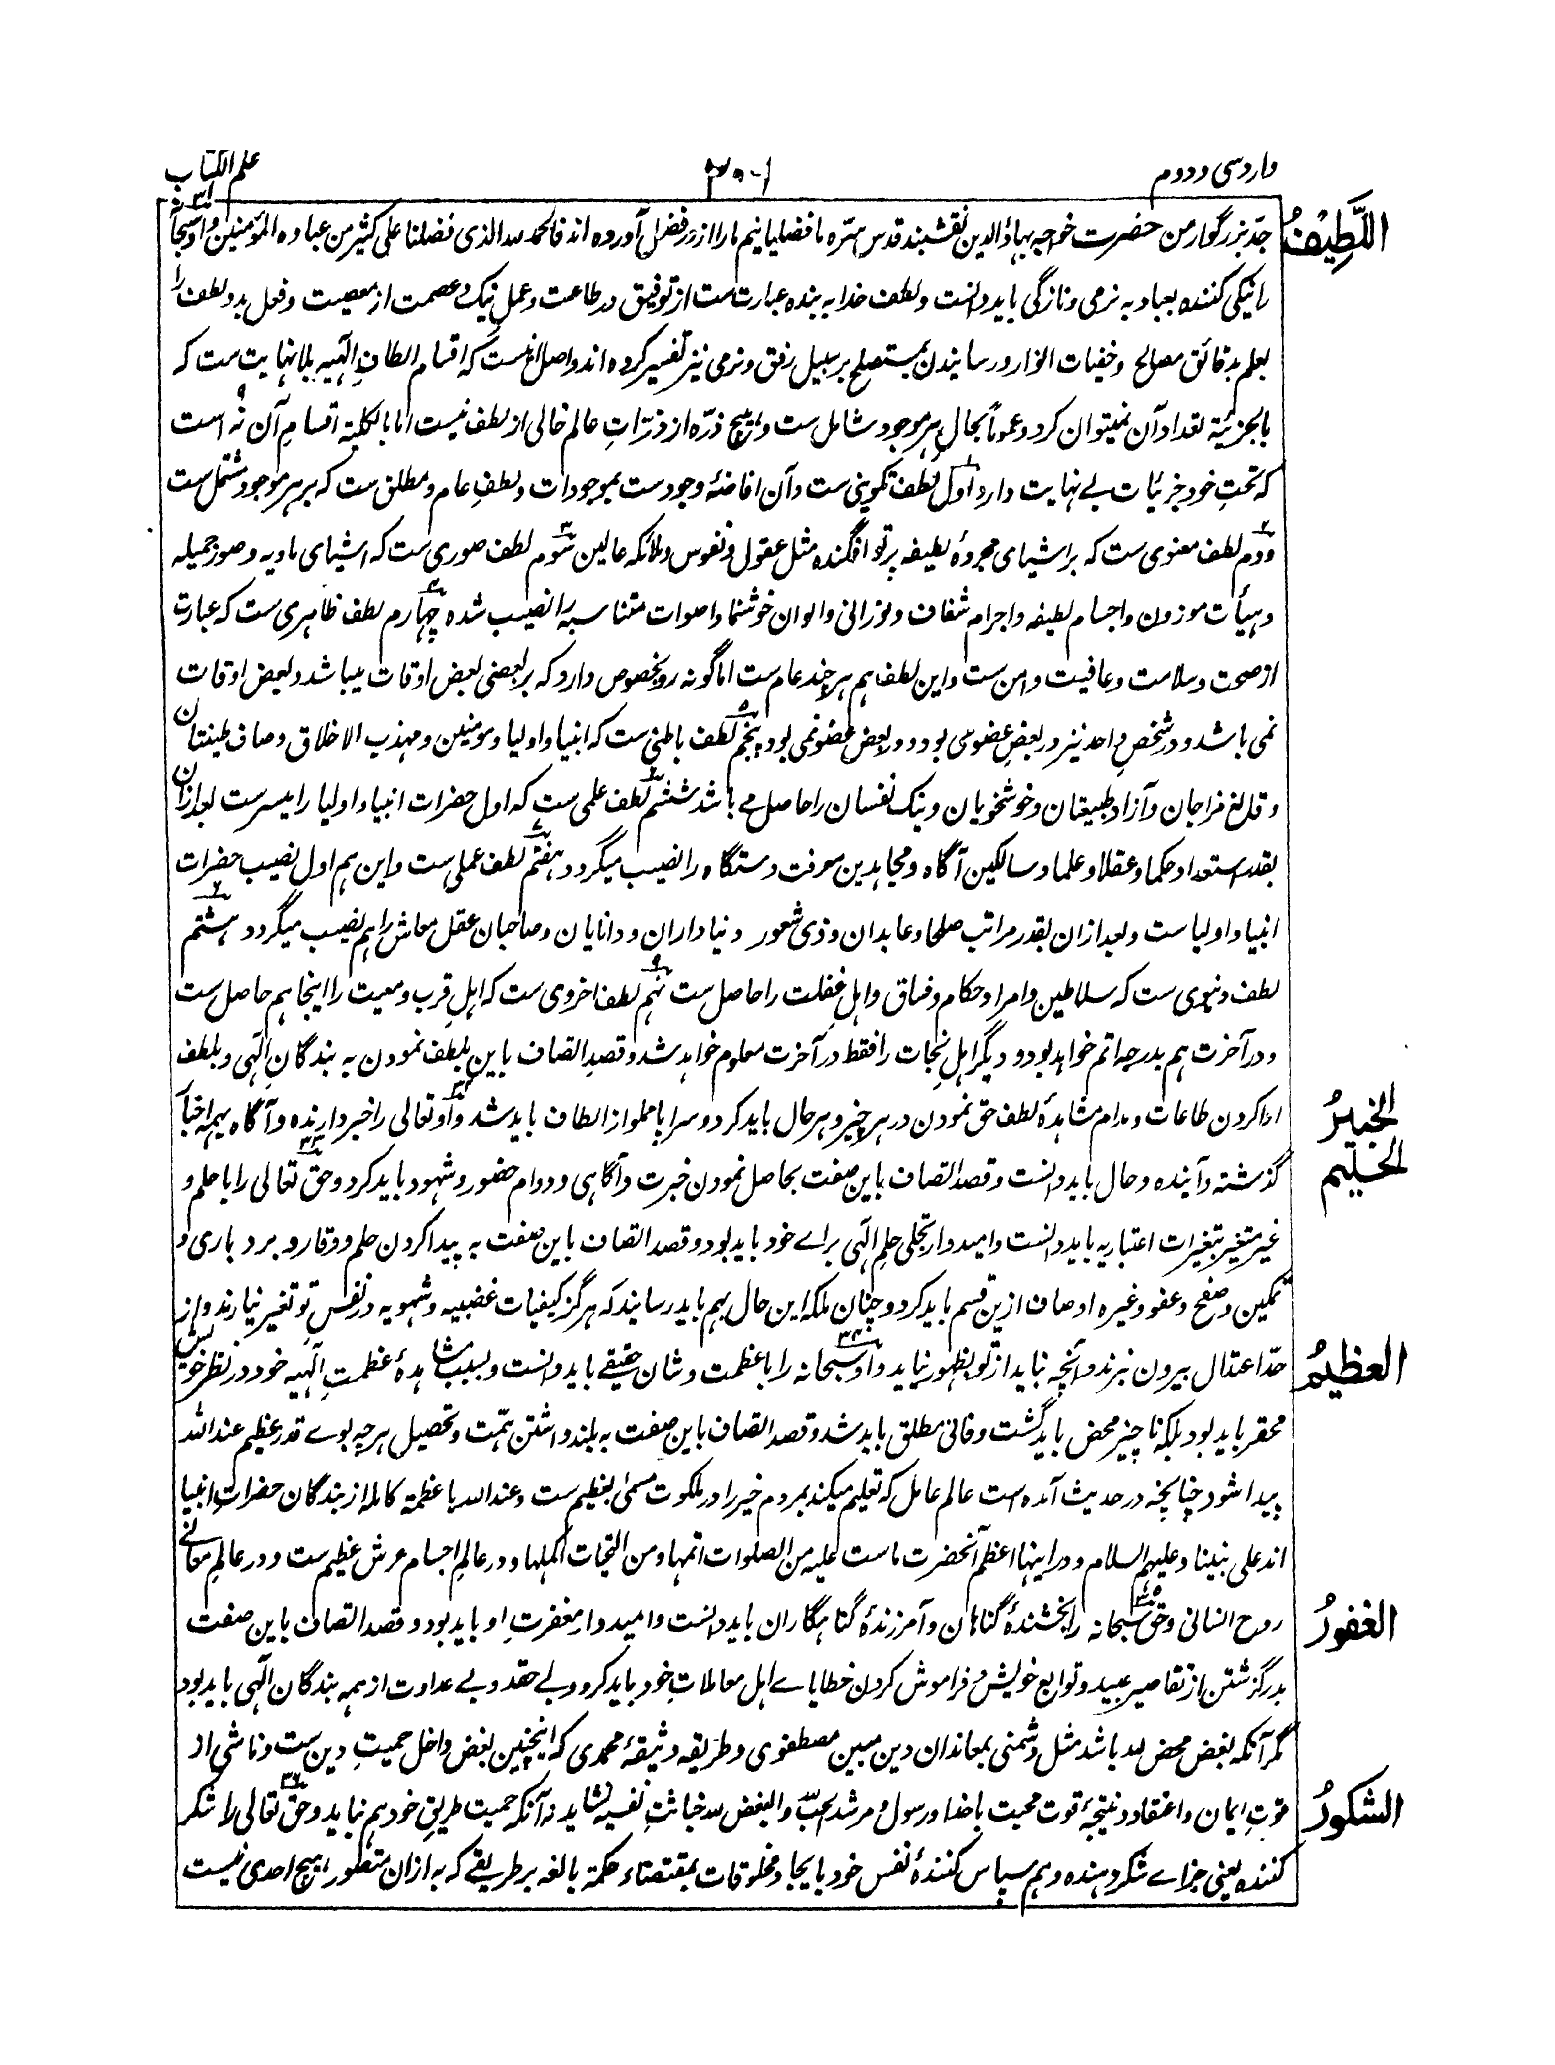 وارد سی و دوم
علم الکتاب
اللَّطِیْفُ
جدّ بزرگوار من حضرت خواجه بهاؤالدین نقشبند قدس سّره ما فضلیانیم ما را از در فضل آورده اند فالحمد لله الذی فضلنا علی کثیر من عباده المؤمنین و او سبحانه
را نیکی کننده بعباد به نرمی و نازگی باید دانست و لطف خدا به بنده عبارت ست از توفیق در طاعت و عمل نیک و عصمت از معصیت و فعل بد و لطف را
بعلم بدقائق مصالح و خفیات الزار و رسانیدن بمستصلح بر سبیل رفق و نرمی نیز تفسیر کرده اند و اصل انست که اقسام الطافِ الٰهیه بلا نهایت ست که
بالجزئیة تعداد آن نمیتوان کرد و عموماً بحالِ هر موجود شامل ست و هیچ ذرّه از ذرّاتِ عالم خالی از لطف نیست اما بالکلیة اقسامِ آن نُه است
که تحتِ خود جزئیات بے نهایت دارد اول لطف تکوینی ست و آن افاضهٔ وجود ست بموجودات و لطفِ عام و مطلق ست که بر هر موجود مشتمل ست
دوم لطف معنوی ست که بر اشیای مجردهٔ لطیفه پرتو افگنده مثل عقول و نفوس و ملائکه عالین سوم لطف صوری ست که اشیای مادیه و صور جمیله
و هیأت موزون و اجسام لطیفه و اجرام شفاف و نورانی و الوان خوشنما و اصوات متناسبه را نصیب شده چهارم لطف ظاهری ست که عبارت
از صحت و سلامت و عافیت و امن ست و این لطف هم هر چند عام ست اما گونه رو بخصوص دارد که بر بعضی بعض اوقات میباشد و بعض اوقات
نمی باشد و در شخصِ واحد نیز در بعضِ عضو می بود و در بعض عضو نمی بود پنجم لطف باطنی ست که انبیا و اولیا و مومنین و مهذب الاخلاق و صاف طینتان
و قلبِ مزاجان و آزاد طبیعتان و خوشخویان و نیک نفسان را حاصل می باشد ششم لطف علمی ست که اول حضرات انبیا و اولیا را میسر ست بعد ازان
بقدر استعداد حکما و عقلا و علما و سالکین آگاه و مجاهدین معرفت دستگاه را نصیب میگردد هفتم لطف عملی ست و این هم اول نصیب حضرات
انبیا و اولیا ست و بعد ازان بقدر مراتب صلحا و عابدان و ذی شعور دنیاداران و دانایان و صاحبان عقل معاش را هم نصیب میگردد هشتم
لطف دنیوی ست که سلاطین و امرا و حکام و فساق و اهلِ غفلت را حاصل ست نهم لطف اخروی ست که اهلِ قرب و معیت را اینجا هم حاصل ست
و در آخرت هم بدرجه اتم خواهد بود و دیگر اهلِ نجات را فقط در آخرت معلوم خواهد شد و قصدِ اتصاف باین بلطف نمودن به بندگانِ الٰهی و بلطف
الخَبِیْرُ
ادا کردن طاعات و مدام مشاهدهٔ لطف حق نمودن در هر چیز و هر حال باید کرد و سراپا مملو از الطاف باید شد و او تعالی را خبر دارنده و آگاه بهمه اخبار
الحَلِیْمُ
گذشته و آینده و حال باید دانست و قصد اتصاف باین صفت بحاصل نمودن خبرت و آگاهی و دوام حضور و شهود باید کرد و حق تعالی را با حلم و
غیر متغیر بتغیرات اعتباریه باید دانست و امیدوار تجلی حلمِ الٰهی براے خود باید بود و قصد اتصاف باین صفت به پیدا کردن حلم و وقار و بردباری و
تمکین و صفح و عفو و غیره اوصاف ازین قسم باید کرد و چنان ملکه این حال بهم باید رسانید که هرگز کیفیات غضبیه و شهویه در نفسِ تو تغیر نیارند و از
العَظِیْمُ
حدّ اعتدال بیرون نبرند و آنچه نباید از تو بظهور نیاید و او سبحانه را با عظمت و شان حقیقے باید دانست و بسببِ مشاهدهٔ عظمتِ الٰهیه خود در نظر خویش
محقر باید بود بلکه ناچیز محض باید گشت و فانی مطلق باید شد و قصد اتصاف باین صفت به بلند داشتن همّت و تحصیل هرچه بوے قدر عظیم عند الله
پیدا شود چنانچه در حدیث آمده است عالم عامل که تعلیم میکند بمردم خیر را در ملکوت مسمیٰ بعظیم ست و عند الله با عظمة کامله از بندگان حضراتِ انبیا
اند علی نبینا و علیهم السلام و در اینها اعظم آنحضرت ماست علیه من الصلوات اتمها و من التحیات اکملها و در عالمِ اجسام عرش عظیم ست و در عالمِ معانی
الغَفُورُ
روح انسانی و حق سبحانه را بخشندهٔ گناهان و آمرزندهٔ گناهگاران باید دانست و امیدوار مغفرتِ او باید بود و قصد اتصاف باین صفت
بدرگزشتن از تقاصیر عبید و توابع خویش و فراموش کردن خطایاے اهل معاملاتِ خود باید کرد و بے حقد و بے عداوت از همه بندگانِ الٰهی باید بود
مگر آنکه بغض محض لله باشد مثل دشمنی بمعاندان دین مبین مصطفوی و طریقه وثیقهٔ محمدی که اینچنین بغض داخل حمیتِ دین ست و ناشی از
الشَّکورُ
قوتِ ایمان و اعتقاد و نتیجهٔ قوت محبت با خدا و رسول و مرشد الحبّ لله و البغض لله خباثتِ نفسیه نشاید نه آنکه حمیت طریقِ خود هم نباید و حق تعالی را شکر
کننده یعنی جزاے شکر دهنده و هم سپاس کنندهٔ نفس خود بایجاد مخلوقات بمقتضاء حکمة بالغه بر طریقے که به ازان متصور هیچ احدی نیست